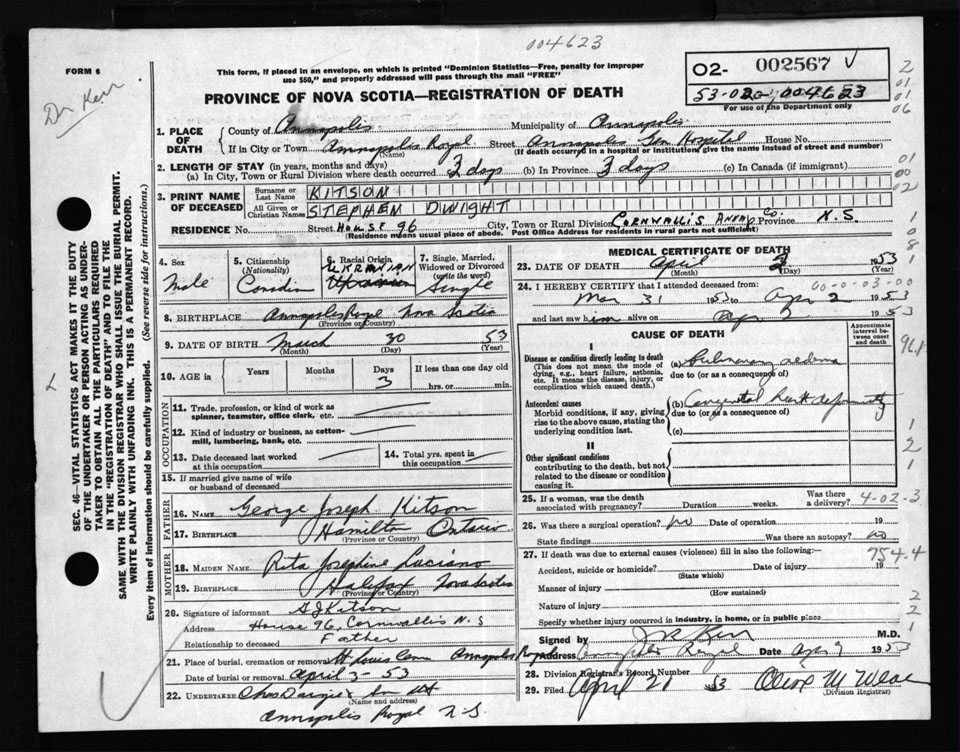 004623
FORM 6
This form, if placed in an envelope, on which is printed "Dominion Statistics—Free, penalty for improper
use $50," and properly addressed will pass through the mail "FREE"
02- 002567
53-020-004623
For use of the Department only
Dr Kerr
PROVINCE OF NOVA SCOTIA—REGISTRATION OF DEATH
1. PLACE OF DEATH
County of Annapolis Municipality of Annapolis
If in City or Town Annapolis Royal Street Annapolis Gen Hospital House No.
(Name) (If death occurred in a hospital or institution, give the name instead of street and number)
2. LENGTH OF STAY (in years, months and days)
(a) In City, Town or Rural Division where death occurred 3 days (b) In Province 3 days (c) In Canada (if immigrant)
3. PRINT NAME OF DECEASED
Surname or Last Name KITSON
All Given or Christian Names STEPHEN DWIGHT
RESIDENCE No. Street HOUSE 96 City, Town or Rural Division CORNWALLIS ANNAP Co. Province N.S.
(Residence means usual place of abode. Post Office Address for residents in rural parts not sufficient)
4. Sex
Male
5. Citizenship (Nationality)
Canadian
6. Racial Origin
UKRANIAN
7. Single, Married, Widowed or Divorced (write the word)
Single
8. BIRTHPLACE Annapolis Royal Nova Scotia
(Province or Country)
9. DATE OF BIRTH March 30 53
(Month) (Day) (Year)
10. AGE in Years Months Days 3 If less than one day old
hrs. or min.
OCCUPATION
11. Trade, profession, or kind of work as spinner, teamster, office clerk, etc.
12. Kind of industry or business, as cotton-mill, lumbering, bank, etc.
13. Date deceased last worked at this occupation
14. Total yrs. spent in this occupation
15. If married give name of wife or husband of deceased
FATHER
16. NAME George Joseph Kitson
17. BIRTHPLACE Hamilton Ontario
(Province or Country)
MOTHER
18. MAIDEN NAME Rita Josephine Luciano
19. BIRTHPLACE Halifax Nova Scotia
(Province or Country)
20. Signature of informant G J Kitson
Address House 96, Cornwallis N.S
Relationship to deceased Father
21. Place of burial, cremation or removal St Louis Cem Annapolis Royal
Date of burial or removal April 3-53
22. UNDERTAKER
(Name and address)
Annapolis Royal N.S.
MEDICAL CERTIFICATE OF DEATH
23. DATE OF DEATH April 2 1953
(Month) (Day) (Year)
24. I HEREBY CERTIFY that I attended deceased from:
Mar 31 1953 to Apr 2 1953
and last saw him alive on Apr 2 1953
CAUSE OF DEATH
Approximate interval between onset and death
I
Disease or condition directly leading to death
(This does not mean the mode of dying, e.g., heart failure, asthenia, etc. It means the disease, injury, or complication which caused death.)
(a) Pulmonary oedema
due to (or as a consequence of)
Antecedent causes
Morbid conditions, if any, giving rise to the above cause, stating the underlying condition last.
(b) Congenital heart deformity
due to (or as a consequence of)
(c)
II
Other significant conditions contributing to the death, but not related to the disease or condition causing it.
25. If a woman, was the death associated with pregnancy? Duration weeks. Was there a delivery?
4-02-3
26. Was there a surgical operation? no Date of operation 19
State findings Was there an autopsy? no
27. If death was due to external causes (violence) fill in also the following:—
754.4
Accident, suicide or homicide? Date of injury 19
(State which)
Manner of injury
(How sustained)
Nature of injury
Specify whether injury occurred in industry, in home, or in public place
Signed by J R Kerr M.D.
Address Annapolis Royal Date 1953
28. Division Registrar's Record Number
29. Filed April 21 53
(Division Registrar)
SEC. 46—VITAL STATISTICS ACT MAKES IT THE DUTY
OF THE UNDERTAKER OR PERSON ACTING AS UNDER-
TAKER TO OBTAIN ALL THE PARTICULARS REQUIRED
IN THE "REGISTRATION OF DEATH" AND TO FILE THE
SAME WITH THE DIVISION REGISTRAR WHO SHALL ISSUE THE BURIAL PERMIT.
WRITE PLAINLY WITH UNFADING INK. THIS IS A PERMANENT RECORD.
Every item of information should be carefully supplied. (See reverse side for instructions.)